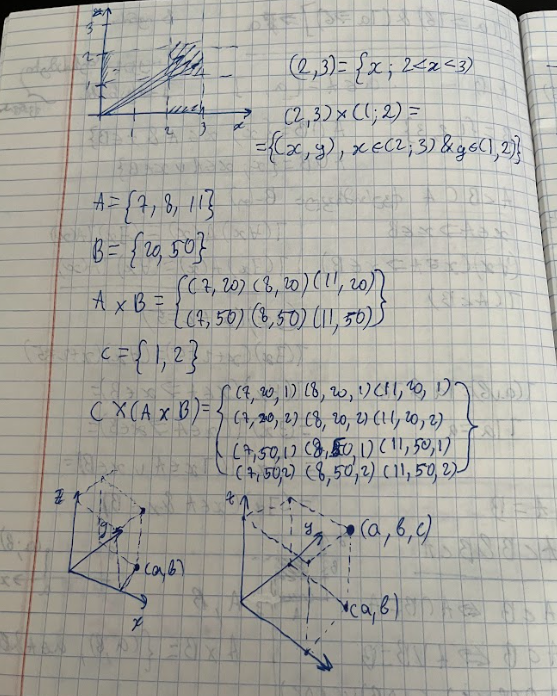 3
2
1
1 2 3 x
(2,3)={x; 2<x<3)
(2,3)×(1;2)=
={(x,y), x∈(2;3)&y∈(1,2)}
A={7,8,11}
B={20,50}
A×B={(7,20)(8,20)(11,20)
(7,50)(8,50)(11,50)}
C={1,2}
C×(A×B)={(7,20,1)(8,20,1)(11,20,1)
(7,20,2)(8,20,2)(11,20,2)
(7,50,1)(8,50,1)(11,50,1)
(7,50,2)(8,50,2)(11,50,2)}
z
y
(a,b)
x
z
y
(a,b,c)
(a,b)